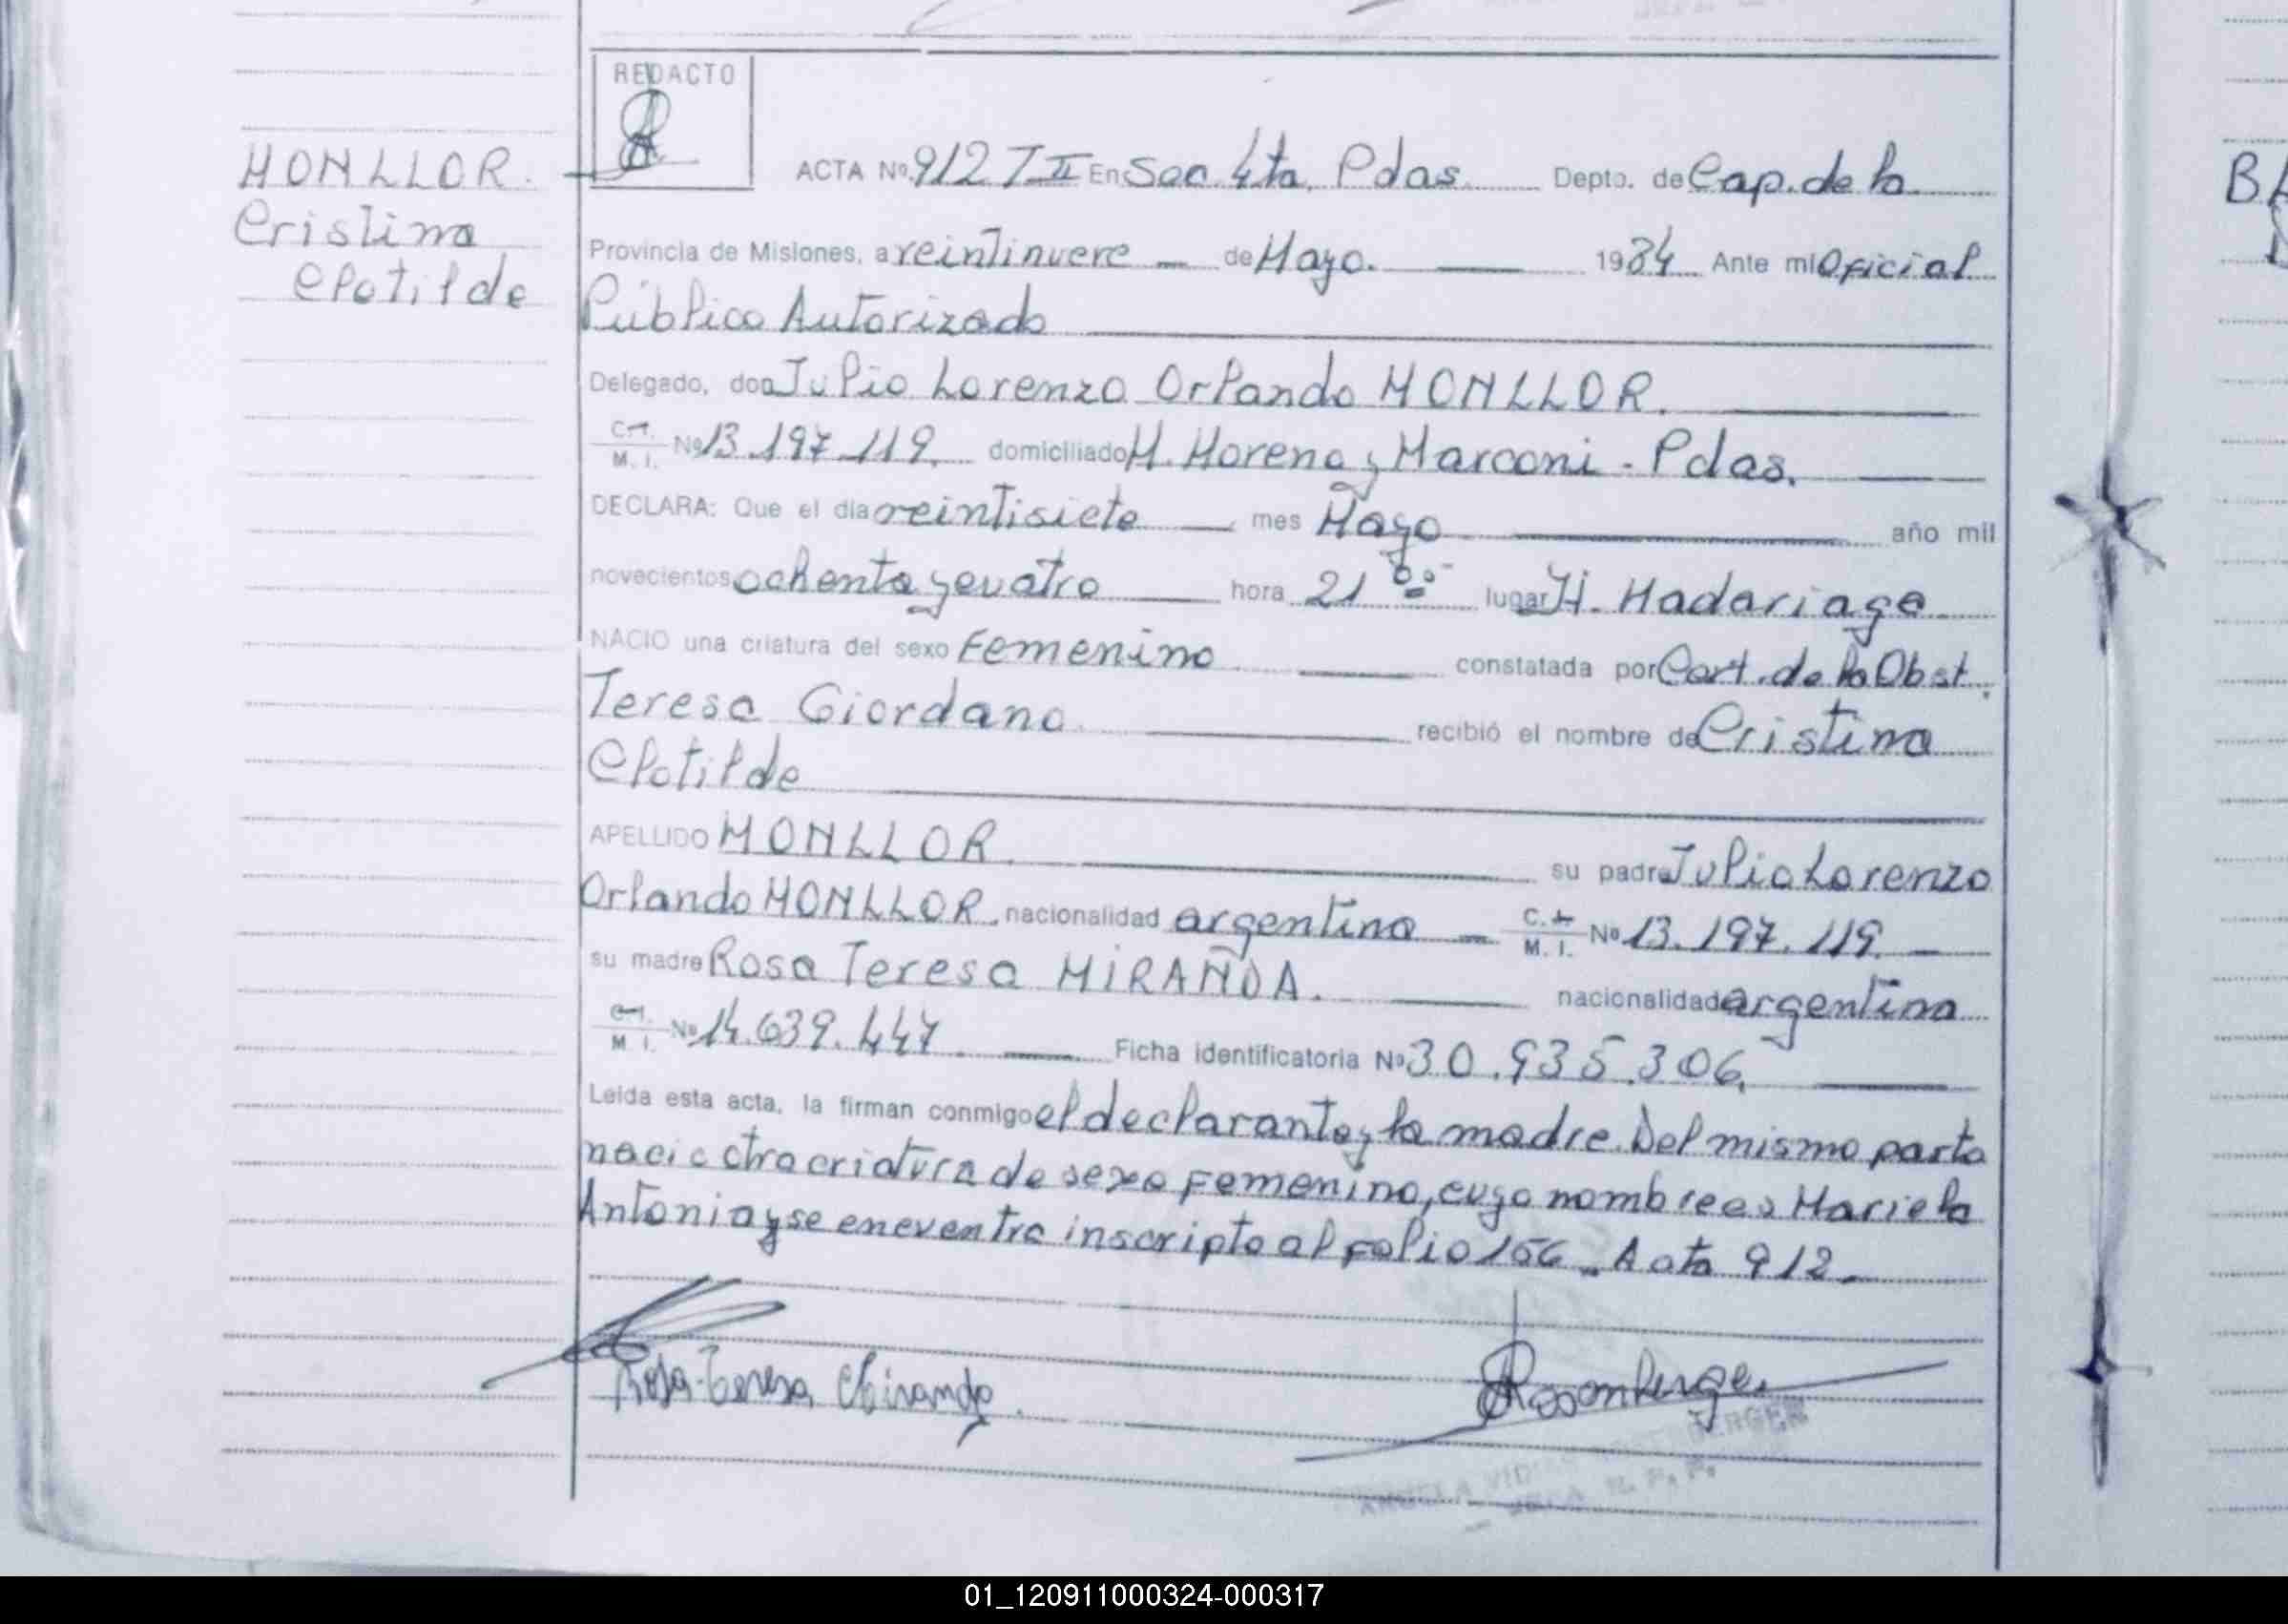 REDACTO
MONLLOR.
Cristina
Clotilde
ACTA Nº 912 T II En Sec. 4ta. Pdas. Depto. de Cap. de la
Provincia de Misiones, a veintinueve de Mayo. 1984 Ante mi Oficial
Público Autorizado
Delegado, don Julio Lorenzo Orlando MONLLOR.
C.I. M. I. Nº 13.197.119. domiciliado M. Moreno y Marconi - Pdas.
DECLARA: Que el día veintisiete mes Mayo año mil
novecientos ochenta y cuatro hora 21 00 lugar H. Madariaga
NACIO una criatura del sexo Femenino constatada por Cert. de la Obst.
Teresa Giordano. recibió el nombre de Cristina
Clotilde
APELLIDO MONLLOR. su padre Julio Lorenzo
Orlando MONLLOR. nacionalidad argentina C.I. M. I. Nº 13.197.119.
su madre Rosa Teresa MIRAÑDA. nacionalidad argentina
C.I. M. I. Nº 14.639.447. Ficha identificatoria Nº 30.935.306.
Leida esta acta, la firman conmigo el declarante y la madre. Del mismo parto
nació otra criatura de sexo Femenino, cuyo nombre es Mariela
Antonia y se encuentra inscripta al folio 156 - Acta 912 -
Rosa Teresa Miranda.
Rosemberger
BERGER
01_120911000324-000317